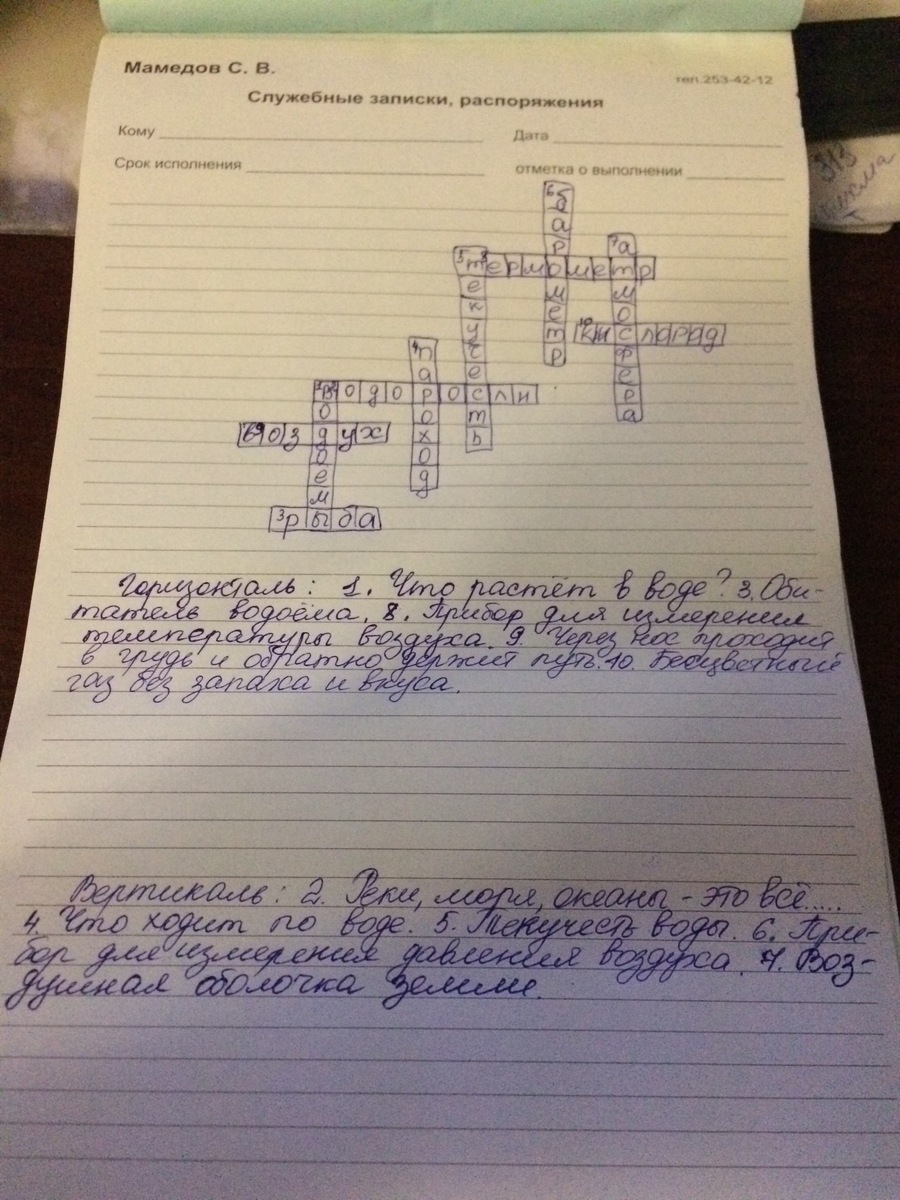 Мамедов С. В.
тел.253-42-12
Служебные записки, распоряжения
Кому Дата
Срок исполнения отметка о выполнении
6барометр
7атмосфера
5 8термометр
текучесть
10кислрад
4пароход
1 2водоросли
водоемы
9воздух
3рыба
Горизонталь: 1. Что растёт в воде? 3. Оби-
татель водоёма. 8. Прибор для измерения
температуры воздуха. 9. Через нос проходит
в грудь и обратно держит путь. 10. Бесцветный
газ без запаха и вкуса.
Вертикаль: 2. Реки, моря, океаны - это всё.....
4. Что ходит по воде. 5. Текучесть воды. 6. При-
бор для измерения давления воздуха. 7. Воз-
душная оболочка земли.